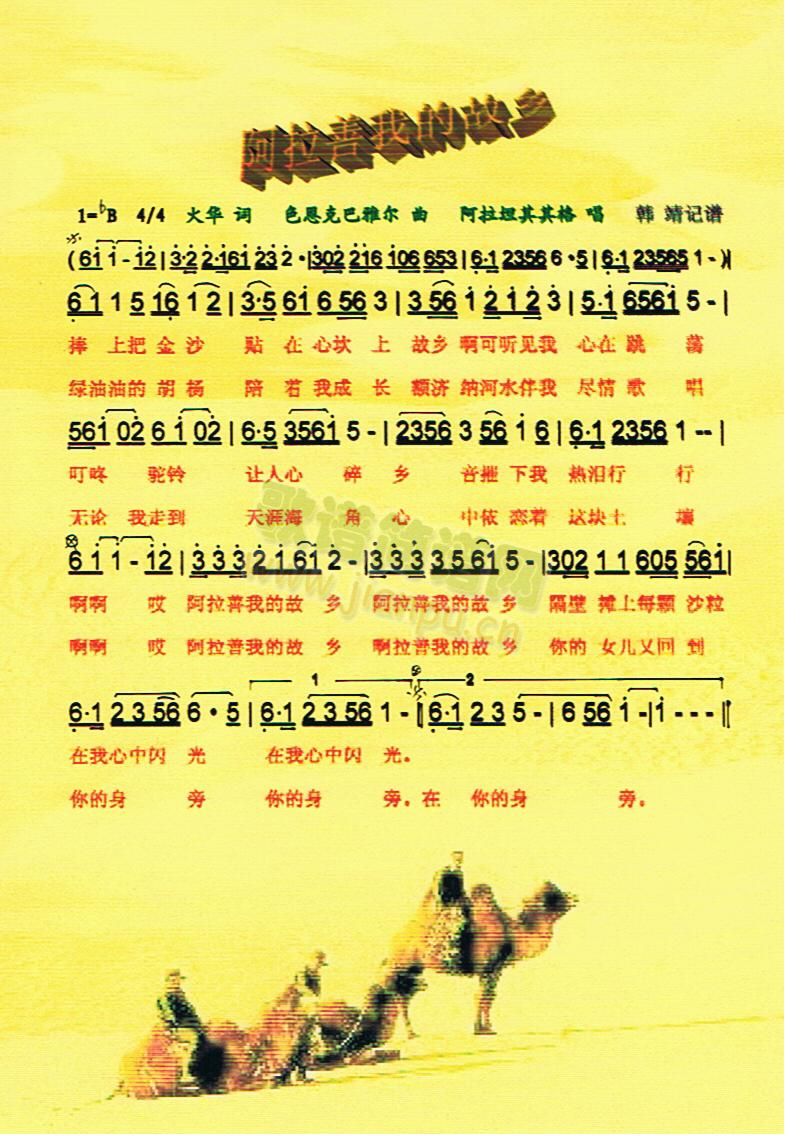 阿拉善我的故乡
1=♭B 4/4 火华 词 色恩克巴雅尔 曲 阿拉坦其其格 唱 韩 靖记谱
(6i i - i2 | 3·2 2·161 23 2· | 302 216 106 653 | 6·1 2356 6·5 | 6·1 23565 1 -)|
6 1 1 5 16 1 2 | 3·5 61 6 56 3 | 3 56 1 2 1 2 3 | 5·1 6561 5 - |
捧 上把 金 沙 贴 在 心坎 上 故乡 啊可听见我 心在 跳 荡
绿油油的 胡 杨 陪 着 我成 长 额济 纳河水伴我 尽情 歌 唱
561 02 6 1 02 | 6·5 3561 5 - | 2356 3 56 1 6 | 6·1 2356 1 -- |
叮咚 驼铃 让人心 碎 乡 音摧 下我 热泪行 行
无论 我走到 天涯海 角 心 中依 恋着 这块土 壤
6 1 1 - 12 | 3 3 3 2 1 61 2 - | 3 3 3 3 5 61 5 - | 302 1 1 605 561 |
啊啊 哎 阿拉善我的故 乡 阿拉善我的故 乡 隔壁 摊上每颗 沙粒
啊啊 哎 阿拉善我的故 乡 啊拉善我的故 乡 你的 女儿又回 到
1 2
6·1 2 3 56 6·5 | 6·1 2 3 56 1 - ‖ 6·1 2 3 5 - | 6 56 1 - | 1 - - - ‖
在我心中闪 光 在我心中闪 光。
你的身 旁 你的身 旁。在 你的身 旁。
歌谱简谱网
www.jianpu.cn